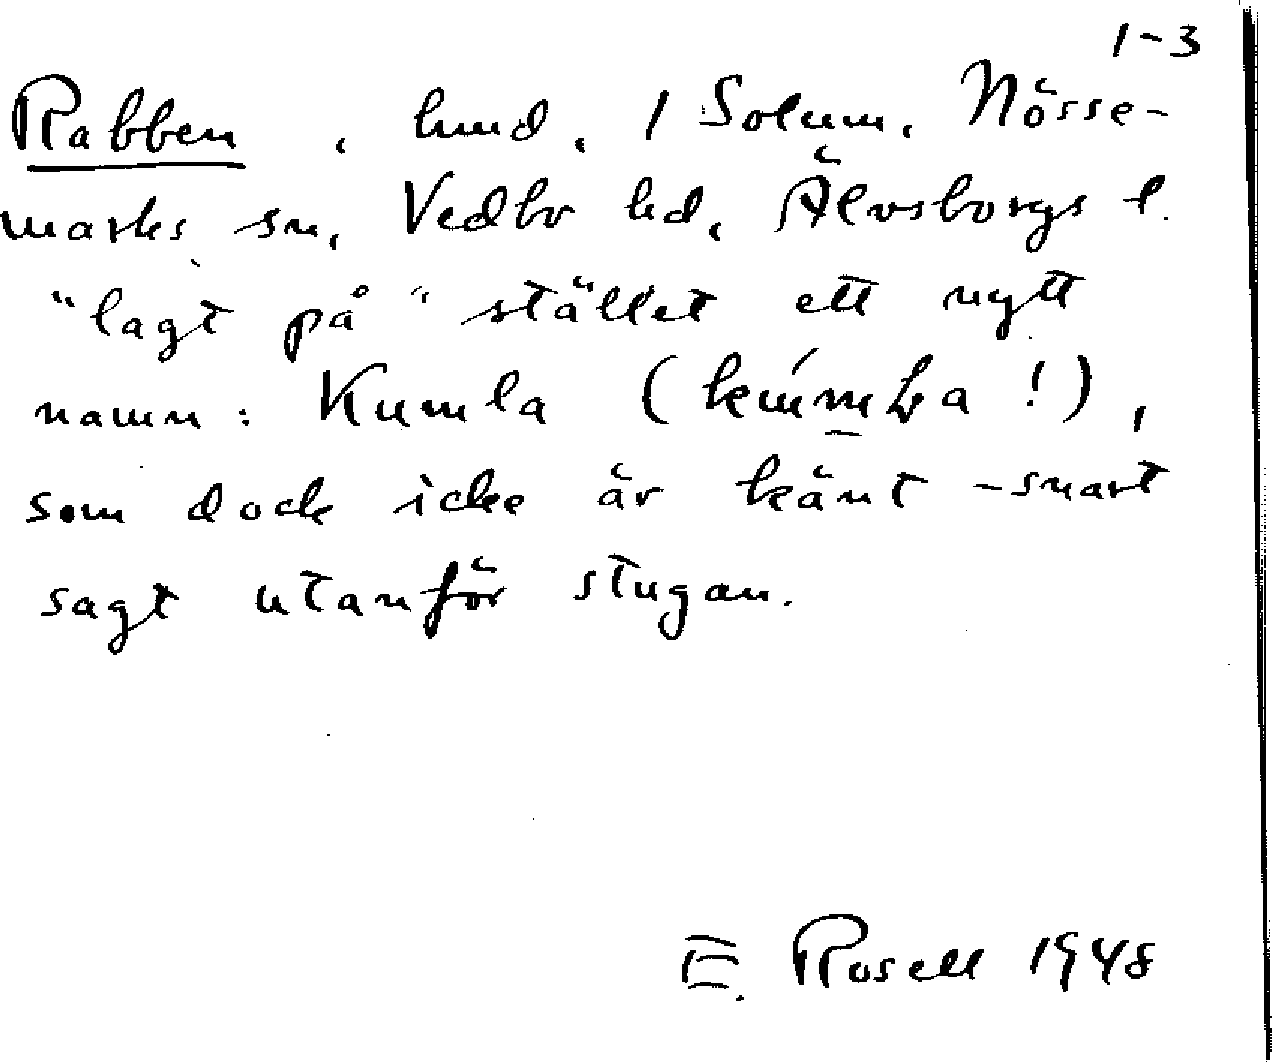 1-3
Rabben, hmd, 1 Solum, Nösse-
marks sn, Vedbo hd, Älvsborgs l.
"lagt på" stället ett nytt
namn: Kumla ( !),
som dock icke är känt - snart
sagt utanför stugan.
E. Rosell 1948